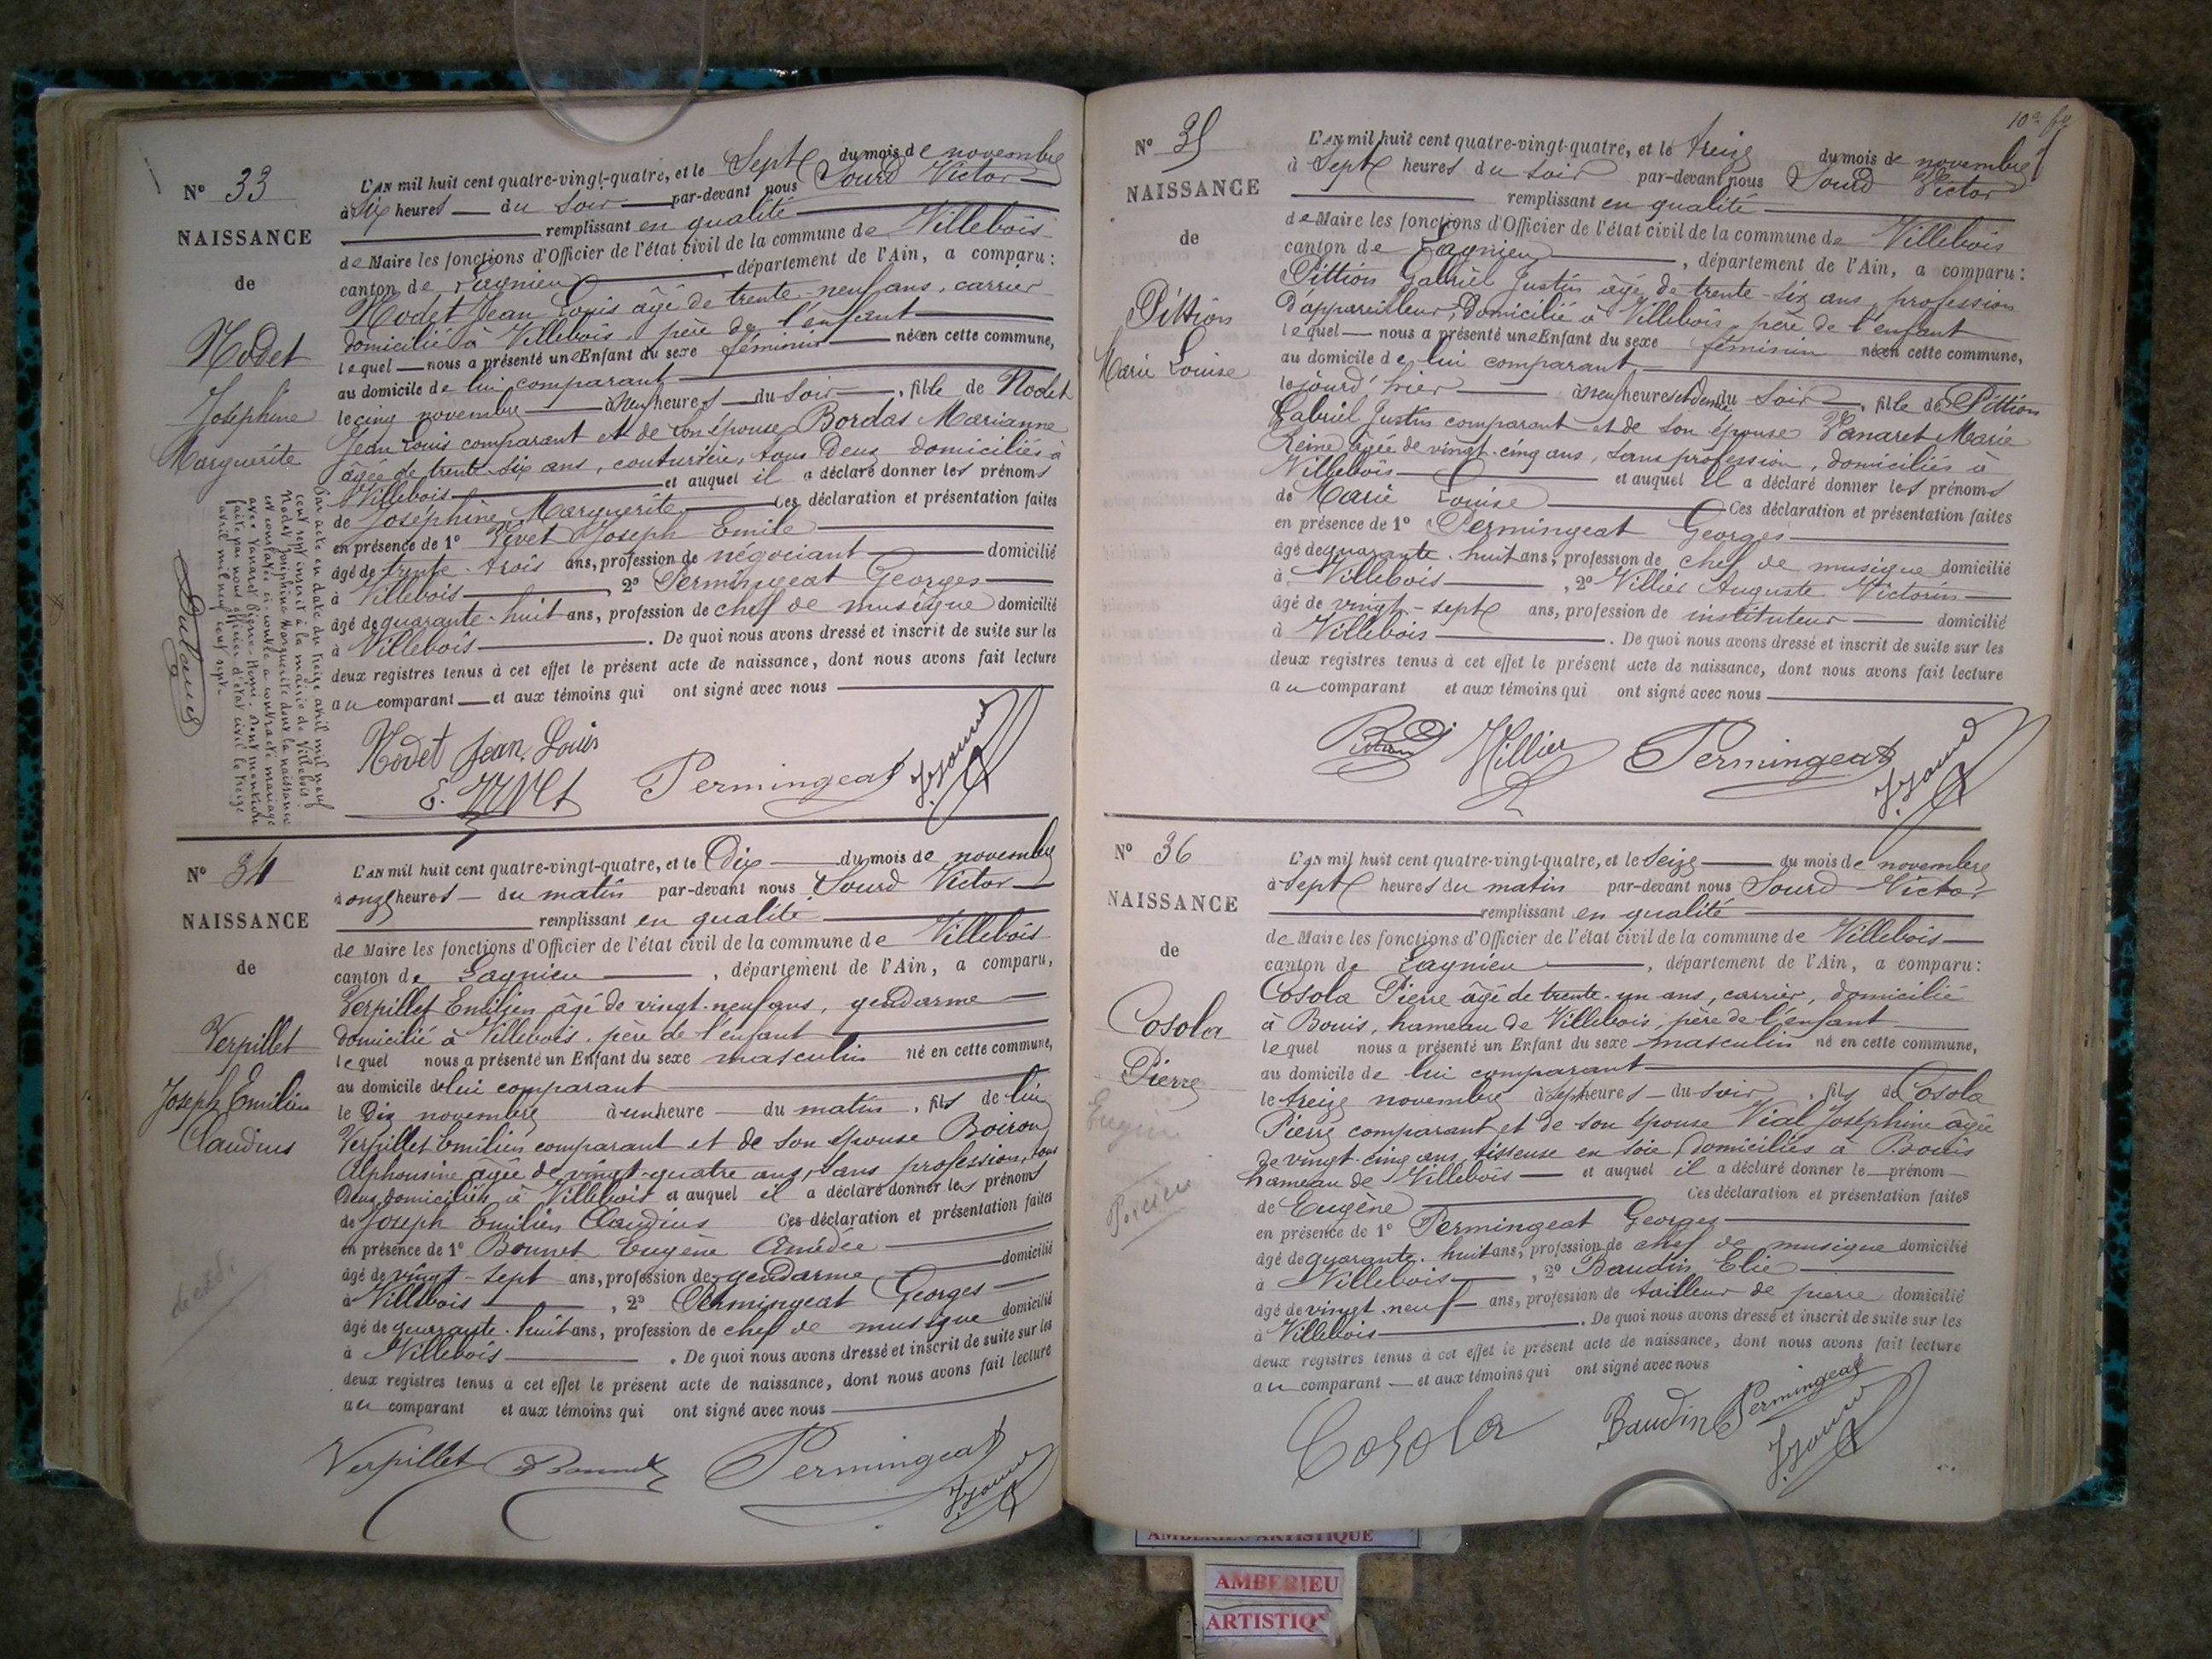 N° 33
NAISSANCE
de
Nodet
Joséphine
Marguerite
L'AN mil huit cent quatre-vingt-quatre, et le Sept du mois de novembre
à six heures du soir par-devant nous Sourd Victor
remplissant en qualité
de Maire les fonctions d'Officier de l'état civil de la commune de Villebois
canton de Lagnieu, département de l'Ain, a comparu:
Nodet Jean Louis âgé de trente-neuf ans, carrier
domicilié à Villebois, père de l'enfant
lequel nous a présenté une Enfant du sexe féminin née en cette commune,
au domicile de lui comparant
le cinq novembre à neuf heures du soir, fille de Nodet
Jean Louis comparant et de son épouse Bordas Marianne
âgée de trente-six ans, couturière, tous deux domiciliés à
Villebois et auquel il a déclaré donner les prénoms
de Joséphine Marguerite Ces déclaration et présentation faites
en présence de 1° Vivet Joseph Emile
âgé de trente-trois ans, profession de négociant domicilié
à Villebois, 2° Permingeat Georges
âgé de quarante-huit ans, profession de chef de musique domicilié
à Villebois. De quoi nous avons dressé et inscrit de suite sur les
deux registres tenus à cet effet le présent acte de naissance, dont nous avons fait lecture
au comparant et aux témoins qui ont signé avec nous
Par acte en date du treize avril mil neuf
cent sept inscrit à la mairie de Villebois
Nodet Joséphine Marguerite dont la naissance
est constatée ci-contre a contracté mariage
avec Vanaret Pierre Henri. Dont mention
faite par nous officier d'état civil le treize
avril mil neuf cent sept.
Nodet Jean Louis
E. Vivet Permingeat
N° 34
NAISSANCE
de
Verpillet
Joseph Emilien
Claudius
L'AN mil huit cent quatre-vingt-quatre, et le dix du mois de novembre
à onze heures du matin par-devant nous Sourd Victor
remplissant en qualité
de Maire les fonctions d'Officier de l'état civil de la commune de Villebois
canton de Lagnieu, département de l'Ain, a comparu,
Verpillet Emilien âgé de vingt-neuf ans, gendarme
domicilié à Villebois, père de l'enfant
lequel nous a présenté un Enfant du sexe masculin né en cette commune,
au domicile de lui comparant
le Dix novembre à une heure du matin, fils de lui
Verpillet Emilien comparant et de son épouse Boiron
Alphonsine âgée de vingt-quatre ans, sans profession, tous
Deux domiciliés à Villebois et auquel il a déclaré donner les prénoms
de Joseph Emilien Claudius Ces déclaration et présentation faites
en présence de 1° Bonnet Eugène Amédée
âgé de vingt-sept ans, profession de gendarme domicilié
à Villebois, 2° Permingeat Georges
âgé de quarante-huit ans, profession de chef de musique domicilié
à Villebois. De quoi nous avons dressé et inscrit de suite sur les
deux registres tenus à cet effet le présent acte de naissance, dont nous avons fait lecture
au comparant et aux témoins qui ont signé avec nous
Verpillet Bonnet Permingeat
10e fo
N° 35
NAISSANCE
de
Pittion
Marie Louise
L'AN mil huit cent quatre-vingt-quatre, et le treize du mois de novembre
à Sept heures du soir par-devant nous Sourd Victor
remplissant en qualité
de Maire les fonctions d'Officier de l'état civil de la commune de Villebois
canton de Lagnieu, département de l'Ain, a comparu:
Pittion Gabriel Justin âgé de trente-six ans, profession
d'appareilleur, Domicilié à Villebois, père de l'enfant
lequel nous a présenté une Enfant du sexe féminin née en cette commune,
au domicile de lui comparant,
le jourd'hier à neuf heures et demie du Soir, fille de Pittion
Gabriel Justin comparant et de son épouse Vanaret Marie
Reine âgée de vingt-cinq ans, sans profession, domiciliés à
Villebois et auquel il a déclaré donner les prénoms
de Marie Louise Ces déclaration et présentation faites
en présence de 1° Permingeat Georges
âgé de quarante-huit ans, profession de chef de musique domicilié
à Villebois, 2° Villier Auguste Victorin
âgé de vingt-sept ans, profession de instituteur domicilié
à Villebois. De quoi nous avons dressé et inscrit de suite sur les
deux registres tenus à cet effet le présent acte de naissance, dont nous avons fait lecture
au comparant et aux témoins qui ont signé avec nous
Villier Permingeat
N° 36
NAISSANCE
de
Cosola
Pierre
Eugène
L'AN mil huit cent quatre-vingt-quatre, et le seize du mois de novembre
à Sept heures du matin par-devant nous Sourd Victor
remplissant en qualité
de Maire les fonctions d'Officier de l'état civil de la commune de Villebois
canton de Lagnieu, département de l'Ain, a comparu:
Cosola Pierre âgé de trente-un ans, carrier, domicilié
à Bouis, hameau de Villebois, père de l'enfant
lequel nous a présenté un Enfant du sexe masculin né en cette commune,
au domicile de lui comparant
le treize novembre à Sept heures du soir, fils de Cosola
Pierre comparant et de son épouse Vial Joséphine âgée
de vingt-cinq ans, tisseuse en soie, domiciliés à Bouis
hameau de Villebois et auquel il a déclaré donner le prénom
de Eugène Ces déclaration et présentation faites
en présence de 1° Permingeat Georges
âgé de quarante-huit ans, profession de chef de musique domicilié
à Villebois, 2° Baudin Elie
âgé de vingt-neuf ans, profession de tailleur de pierre domicilié
à Villebois. De quoi nous avons dressé et inscrit de suite sur les
deux registres tenus à cet effet le présent acte de naissance, dont nous avons fait lecture
au comparant et aux témoins qui ont signé avec nous
Cosola Baudin Permingeat
AMBERIEU ARTISTIQUE
AMBERIEU
ARTISTIQ